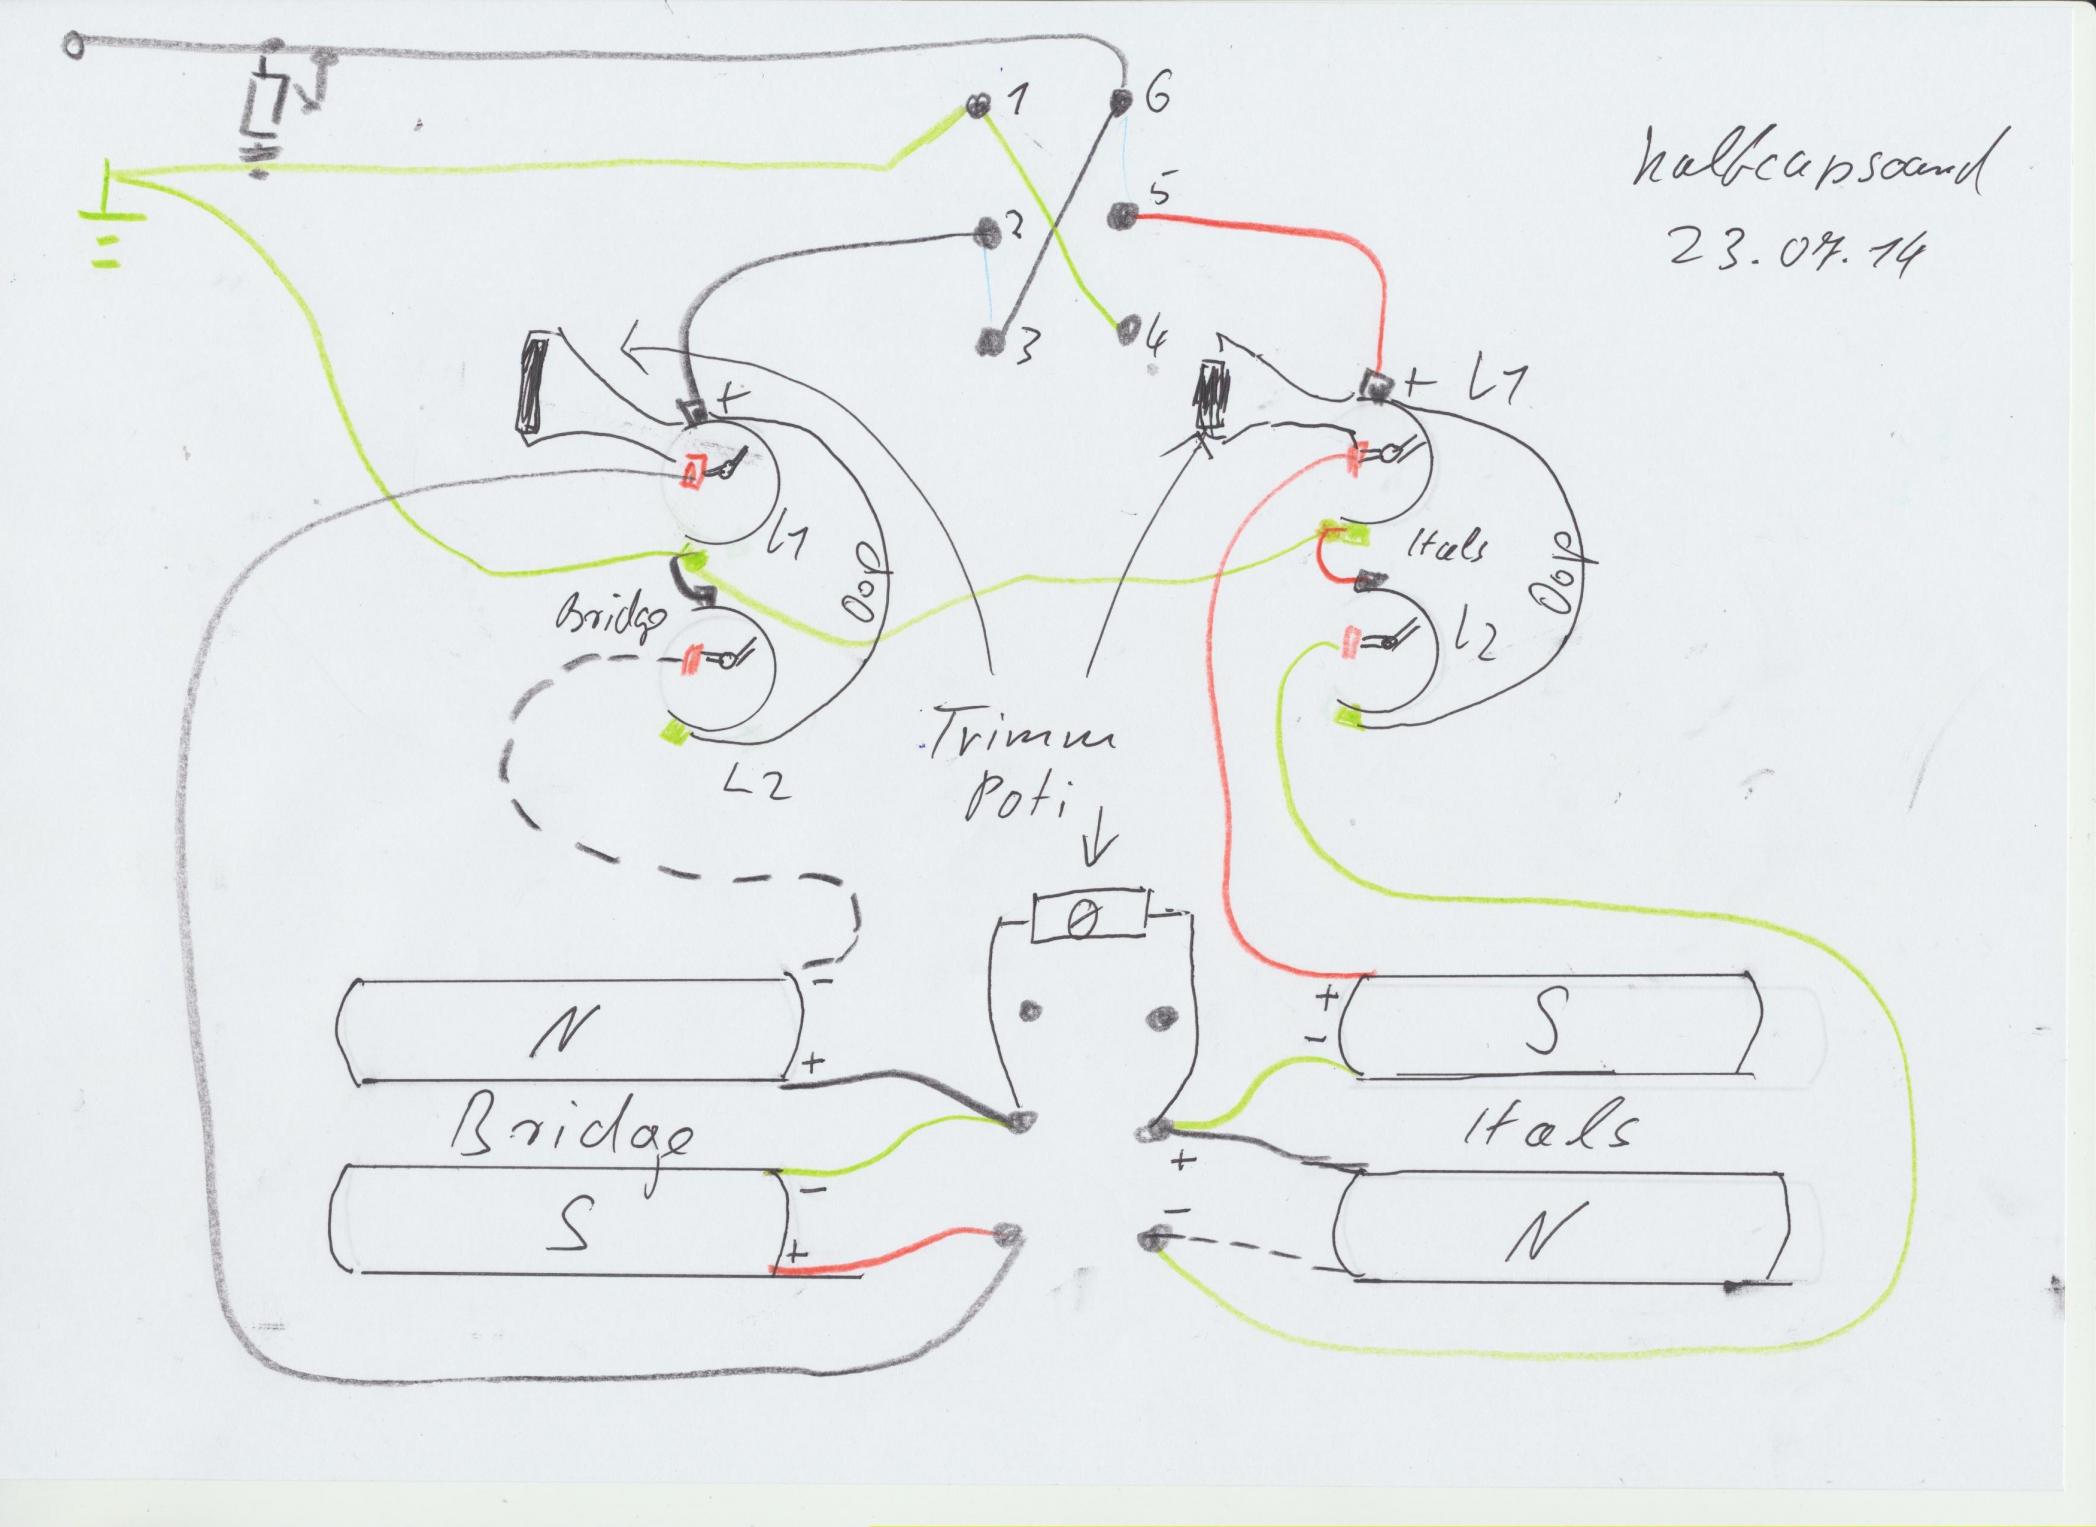 1
6
halfcapsound
23.07.14
5
2
3
4
+
+ L1
L1
Hals
Oop
Oop
Bridge
L2
L2
Trimm
Poti
-
N
+
+
S
-
Bridge
Hals
+
-
S
+
-
N